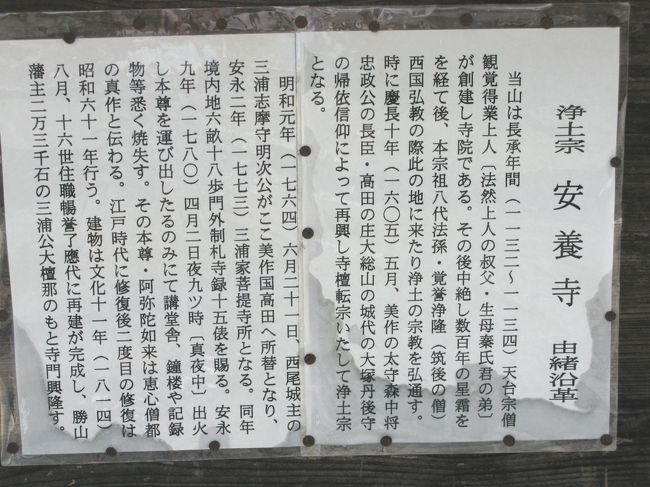 浄土宗 安養寺 由緒沿革
当山は長承年間(一一三二〜一一三四)天台宗僧
観覚得業上人〔法然上人の叔父・生母秦氏君の弟〕
が創建し寺院である。その後中絶し数百年の星霜を
を経て後、本宗祖八代法孫・覚誉浄隆(筑後の僧)
西国弘教の際此の地に来たり浄土の宗教を弘通す。
時に慶長十年(一六〇五)五月、美作の太守森中将
忠政公の長臣・高田の庄大総山の城代の大塚丹後守
の帰依信仰によって再興し寺檀転宗いたして浄土宗
となる。
明和元年(一七六四)六月二十一日、西尾城主の
三浦志摩守明次公がここ美作国高田へ所替となり、
安永二年(一七七三)三浦家菩提寺所となる。同年
境内地六畝十八歩門外制札寺録十五俵を賜る。安永
九年(一七八〇)四月二日夜九ツ時〔真夜中〕出火
し本尊を運び出したるのみにて講堂舎、鐘楼や記録
物等悉く焼失す。その本尊・阿弥陀如来は恵心僧都
の真作と伝わる。江戸時代に修復後二度目の修復は
昭和六十一年行う。建物は文化十一年(一八一四)
八月、十六世住職暢誉了應代に再建が完成し、勝山
藩主二万三千石の三浦公大檀那のもと寺門興隆す。